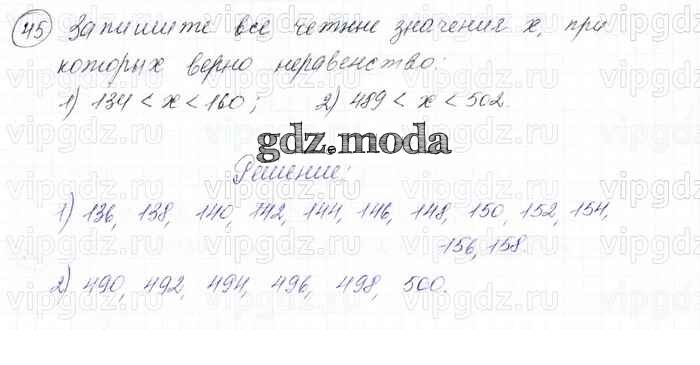 45 Запишите все четные значения x, при
которых верно неравенство:
1) 134 < x < 160; 2) 489 < x < 502.
gdz.moda
Решение:
1) 136, 138, 140, 142, 144, 146, 148, 150, 152, 154,
156, 158.
2) 490, 492, 494, 496, 498, 500.